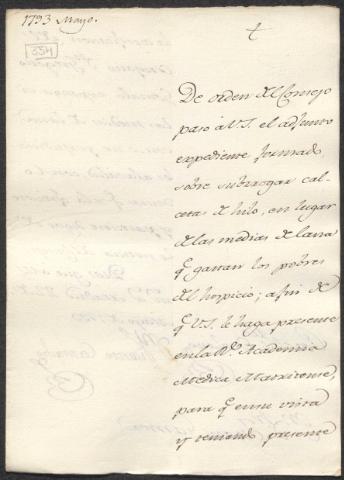 1793 Mayo.
354
De orden del Consejo
paso à V.S. el adjunto
expediente formado
sobre subrrogar cal-
cetas de hilo, en lugar
de las medias de lana
q.e gastan los pobres
del hospicio; a fin de
q.e V.S. le haga presente
en la R.l Academia
Medica Matritense,
para q.e en su vista
y teniendo presente